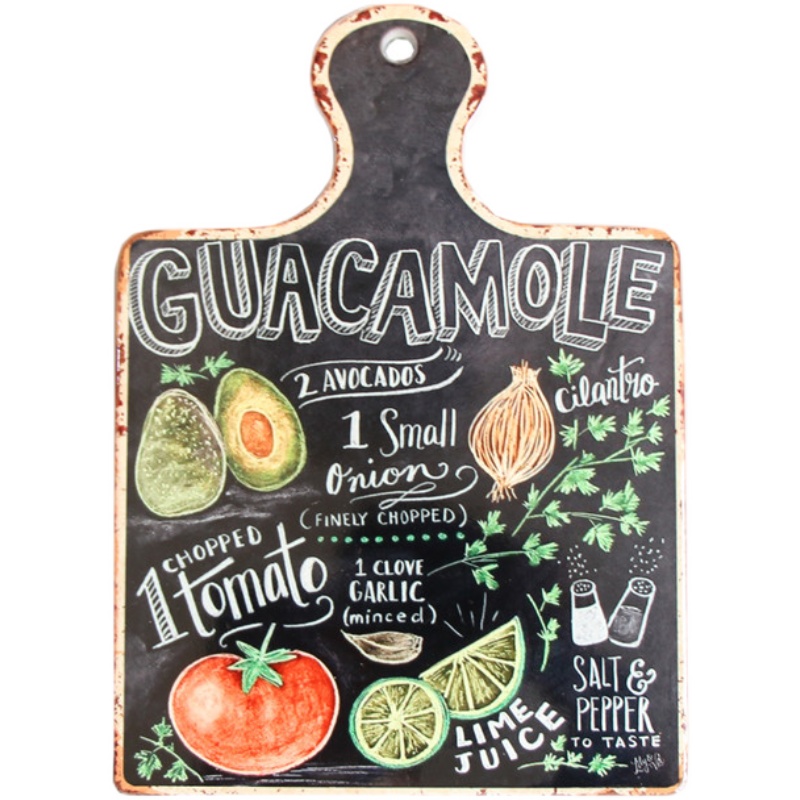 GUACAMOLE
2 AVOCADOS
1 Small
Onion
(FINELY CHOPPED)
cilantro
1 CHOPPED
tomato
1 CLOVE
GARLIC
(minced)
LIME
JUICE
SALT &
PEPPER
TO TASTE